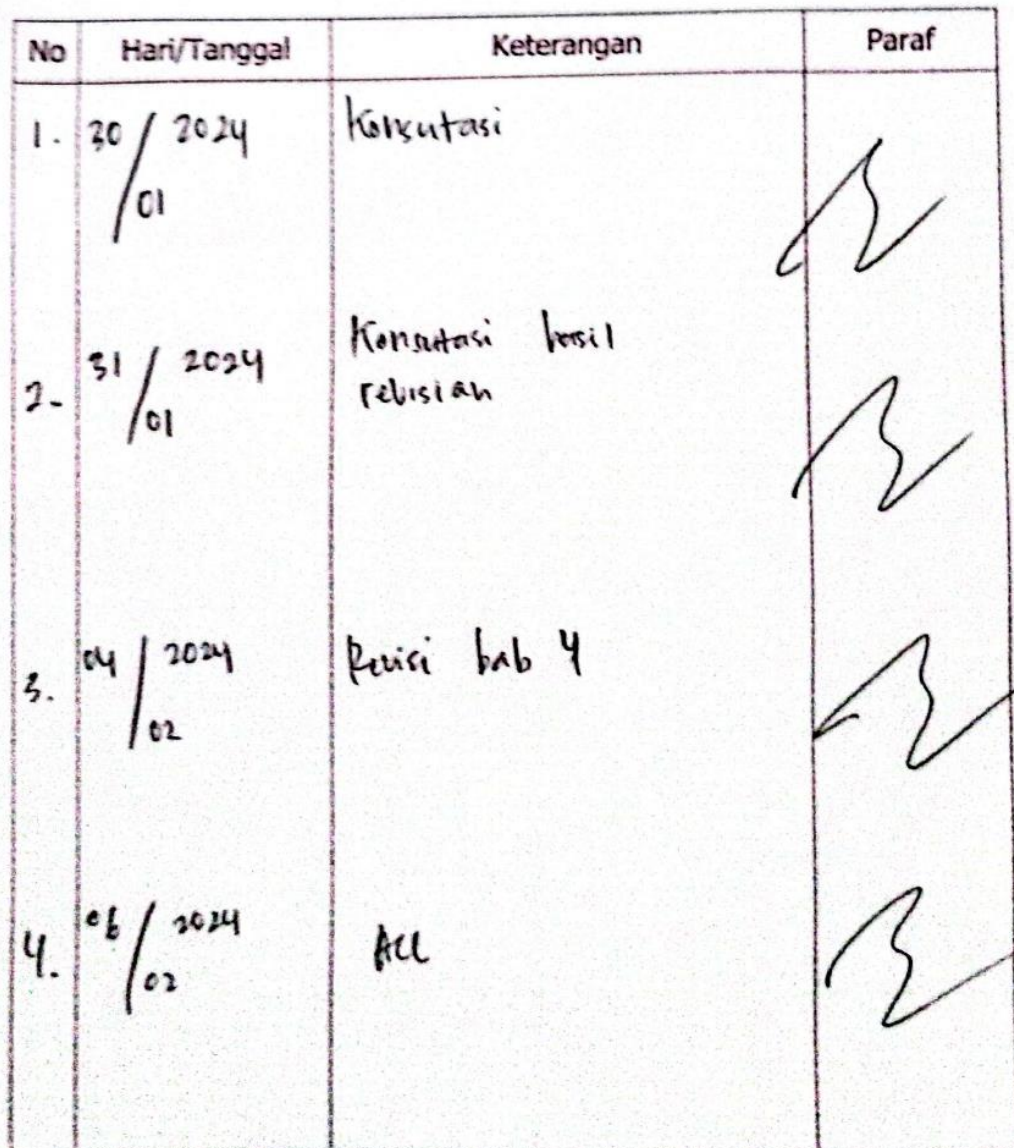 No Hari/Tanggal Keterangan Paraf
1. 30/01 2024 Konsutasi
2- 31/01 2024 Konsutasi hasil
revisian
3. 04/02 2024 Revisi bab 4
4. 06/02 2024 Acc